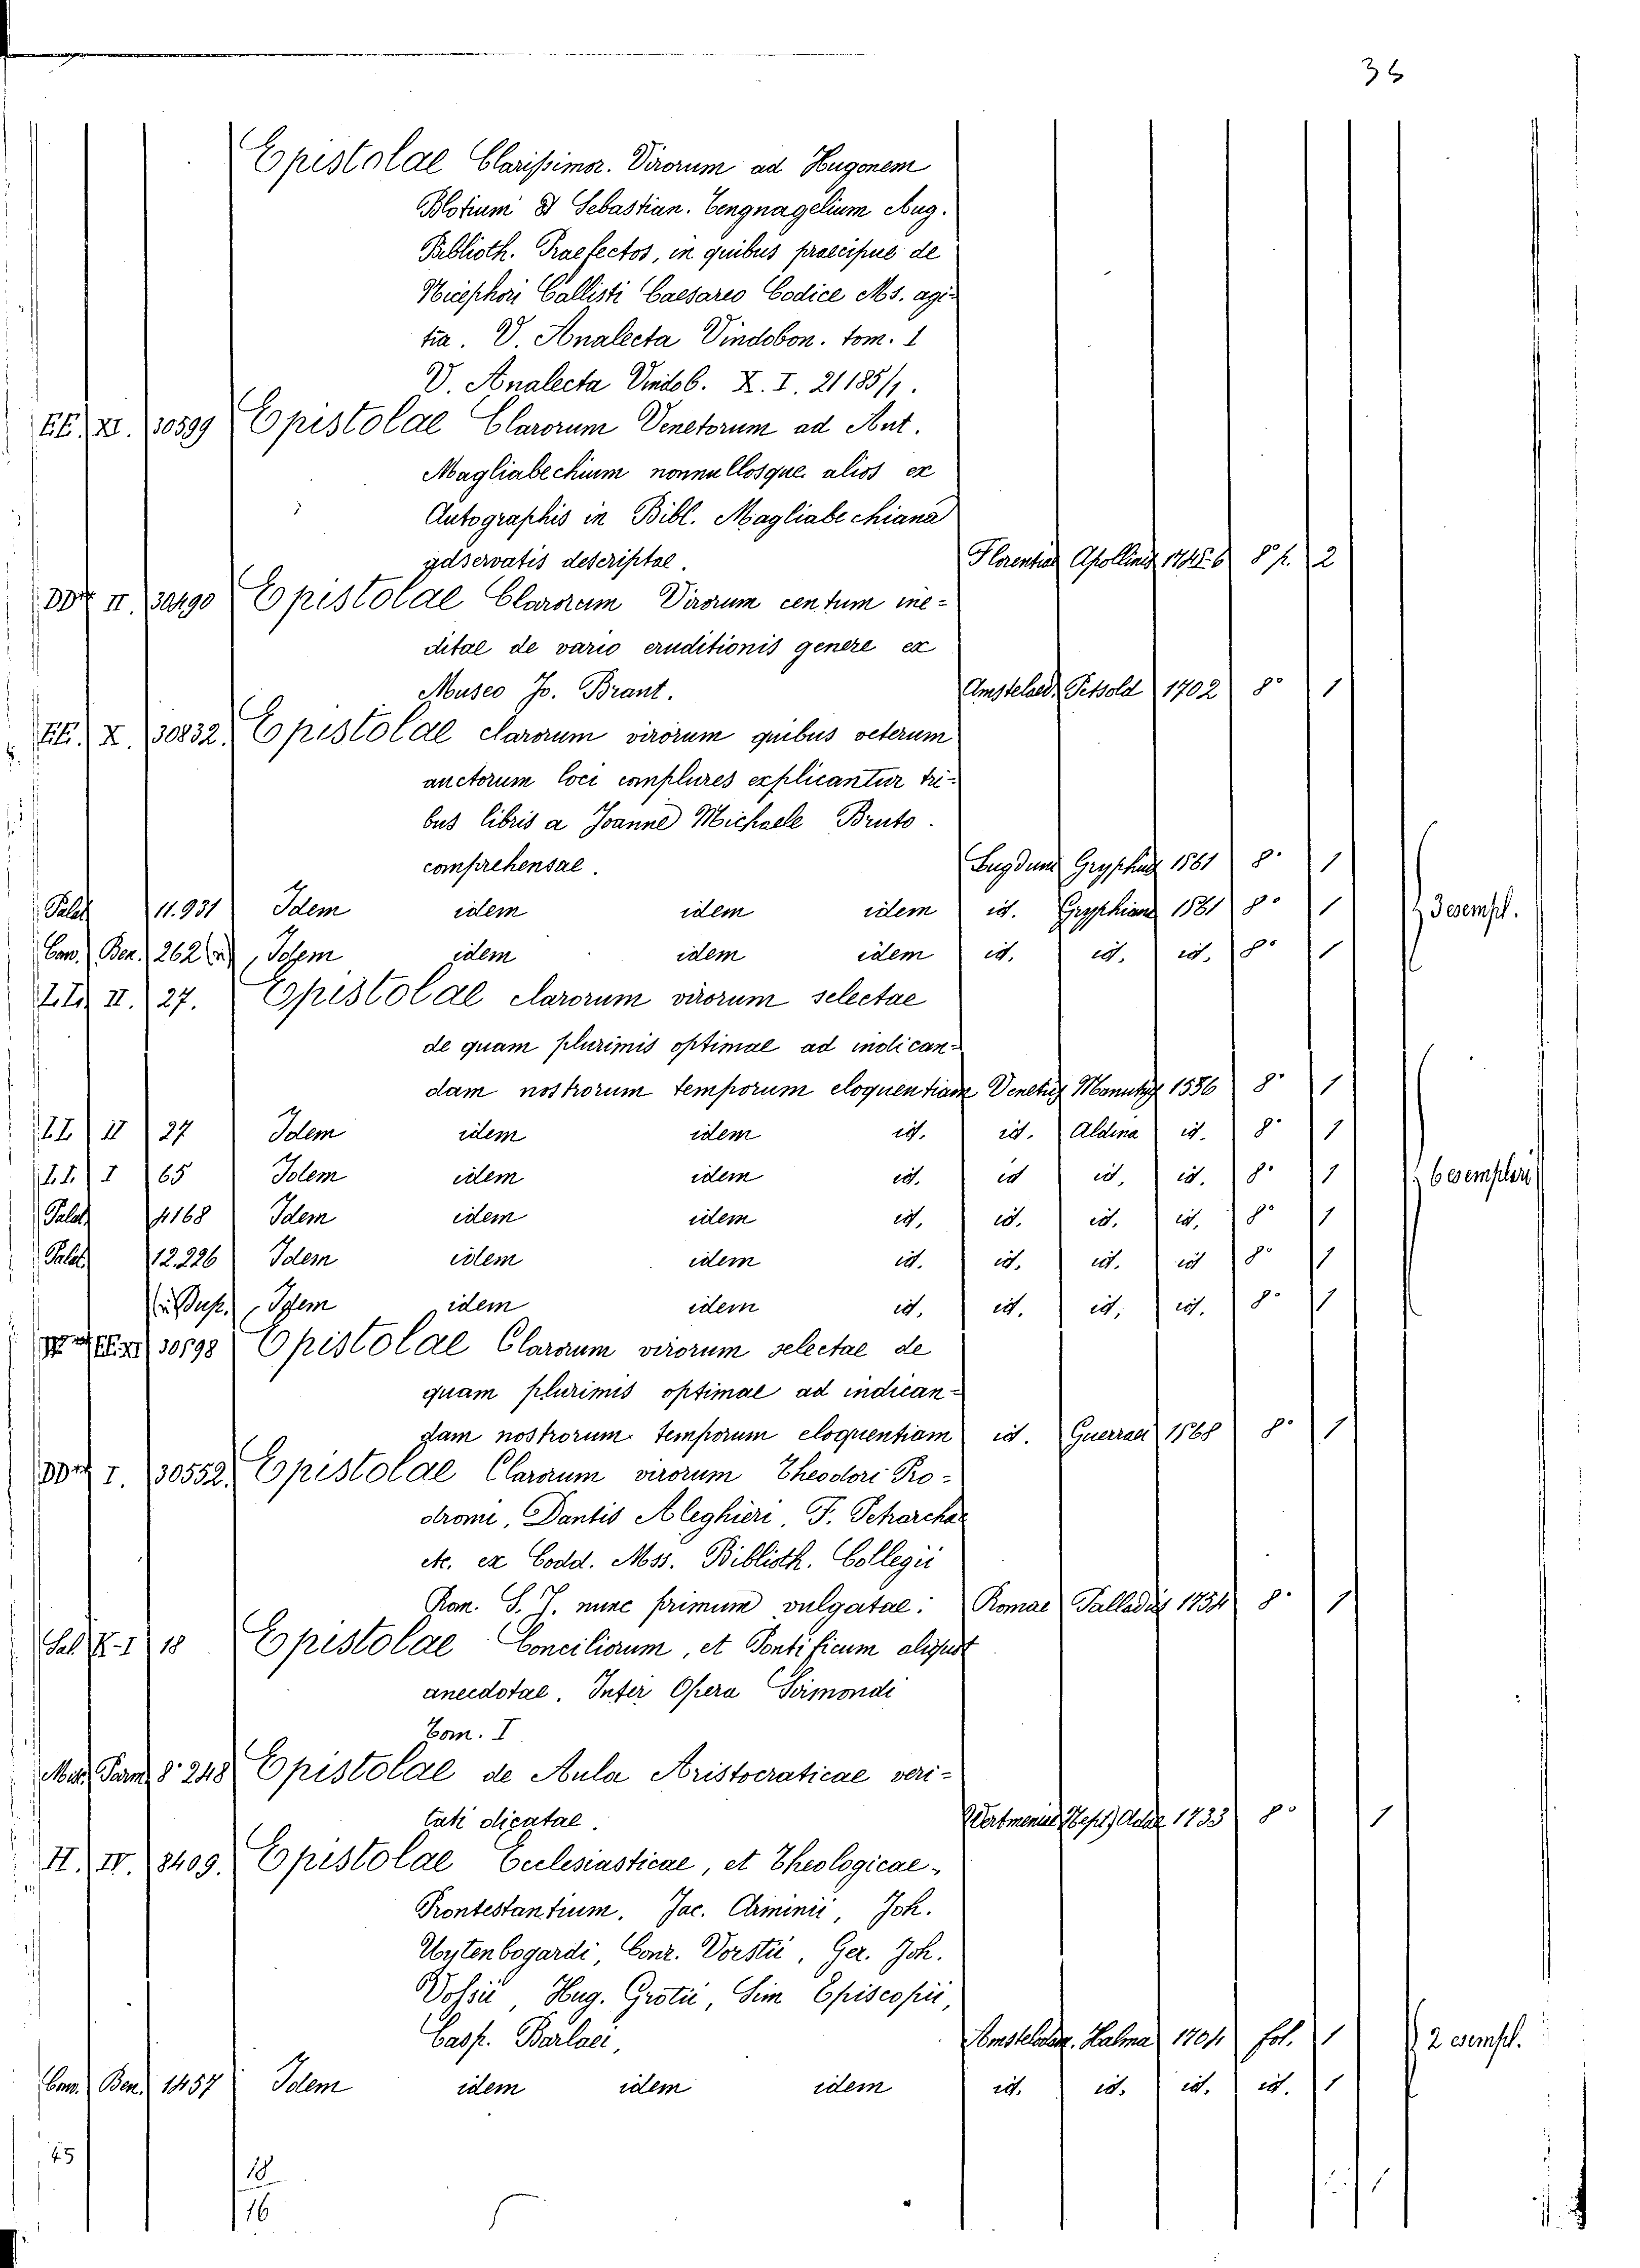 36
Epistolae Clarissimor. Virorum ad Hugonem
Blotium & Sebastian. Tengnagelium Aug.
Biblioth. Praefectos, in quibus praecipue de
Nicephori Callisti Caesareo Codice Ms. agi-
V. Analecta Vindobon. tom. 1
V. Analecta Vindob. X. I. 21185/1.
EE. XI. 30599 Epistolae Clarorum Venetorum ad Ant.
Magliabechium nonnullosque alios ex
Autographis in Bibl. Magliabechiana
adservatis descriptae. Florentiae Apollinis 1745.6 8° p. 2
II. 30490 Epistolae Clarorum Virorum centum ine-
ditae de vario eruditionis genere ex
Museo Jo. Brant. Amstelaed. Petzold 1702 8° 1
EE. X. 30832. Epistolae clarorum virorum quibus veterum
auctorum loci complures explicantur tri-
bus libris a Joanne Michaele Bruto.
comprehensae. Lugduni Gryphius 1561 8° 1
Palat 11.931 Idem idem idem idem id. Gryphiana 1581 8° 1 3 esempl.
Con. Ben. 262 Idem idem idem idem id. id. id. 8° 1
II. 27. Epistolae clarorum virorum selectae
de quam plurimis optimae ad indican-
dam nostrorum temporum eloquentiam Venetiis Manutius 1556 8° 1
II 27 Idem idem idem id. id. Aldina id. 8° 1
I 65 Idem idem idem id. id id. id. 8° 1 6 esemplari
Palat 4168 Idem idem idem id. id. id. id. 8° 1
Palat. 12.226 Idem idem idem id. id. id. id 8° 1
Dup. Idem idem idem id. id. id. id. 8° 1
30598 Epistolae Clarorum virorum selectae de
quam plurimis optimae ad indican-
dam nostrorum temporum eloquentiam id. Guerraei 1568 8° 1
I. 30552. Epistolae Clarorum virorum Theodori Pro-
dromi, Dantis Aleghieri, F. Petrarchae
etc. ex Codd. Mss. Biblioth. Collegii
Rom. S. J. nunc primum vulgatae: Romae Palladis 1754 8° 1
Sal. E-I 18 Epistolae Conciliorum, et Pontificum aliquot
anecdotae. Inter Opera Sirmondi
Tom. I
Parm. 8° 248 Epistolae de Aula Aristocraticae veri-
tati dicatae. 1733 8° 1
II. IV. 8409. Epistolae Ecclesiasticae, et Theologicae
Prontestantium. Jac. Arminii, Joh.
Uytenbogardi, Conr. Vorstii, Ger. Joh.
Vossii, Hug. Grotii, Sim Episcopii,
Casp. Barlaei, Amstelodam. Halma 1704 fol. 1 2 esempl.
Con. Ben. 1457 Idem idem idem idem id. id. id. id. 1
45
18
16